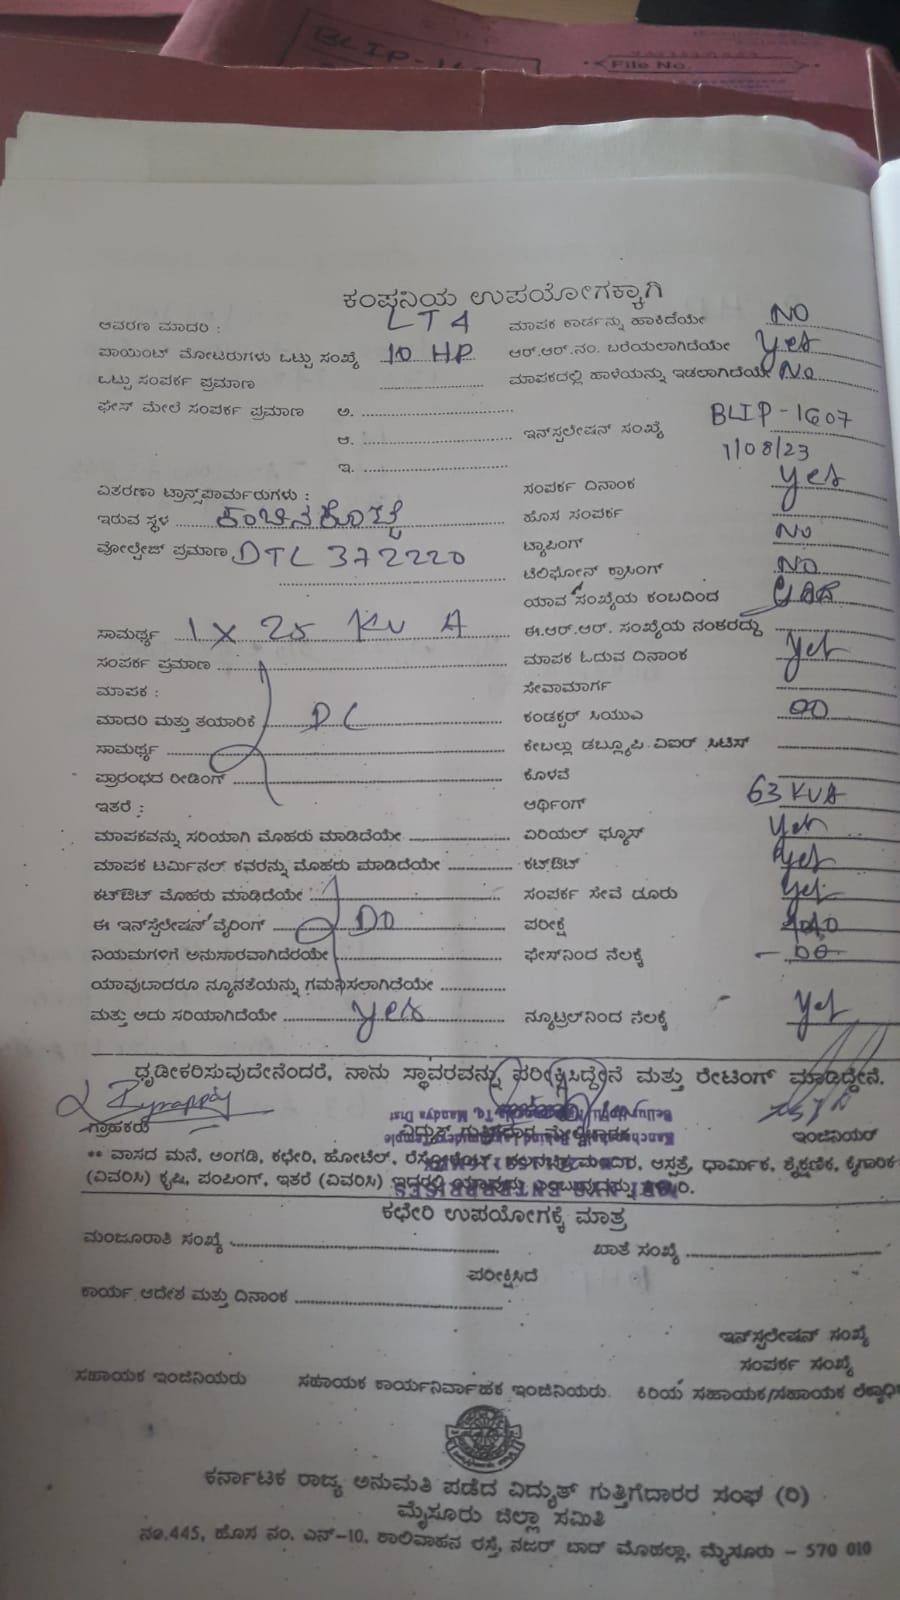 BLIP-16
File No.
ಕಂಪನಿಯ ಉಪಯೋಗಕ್ಕಾಗಿ
ಆವರಣ ಮಾದರಿ : LT4 ಮಾಪಕ ಕಾರ್ಡನ್ನು ಹಾಕಿದೆಯೇ NO
ಪಾಯಿಂಟ್ ಮೋಟರುಗಳು ಒಟ್ಟು ಸಂಖ್ಯೆ 10 HP ಆರ್.ಆರ್.ನಂ. ಬರೆಯಲಾಗಿದೆಯೇ Yes
ಒಟ್ಟು ಸಂಪರ್ಕ ಪ್ರಮಾಣ ಮಾಪಕದಲ್ಲಿ ಹಾಳೆಯನ್ನು ಇಡಲಾಗಿದೆಯೇ No
ಫೇಸ್ ಮೇಲೆ ಸಂಪರ್ಕ ಪ್ರಮಾಣ ಅ.
ಆ. ಇನ್‌ಸ್ಟಲೇಷನ್ ಸಂಖ್ಯೆ BLIP-1607
ಇ. 1/08/23
ವಿತರಣಾ ಟ್ರಾನ್ಸ್‌ಫಾರ್ಮರುಗಳು : ಸಂಪರ್ಕ ದಿನಾಂಕ yes
ಇರುವ ಸ್ಥಳ ಹೊಸ ಸಂಪರ್ಕ
ವೋಲ್ಟೇಜ್ ಪ್ರಮಾಣ DTL 372220 ಟ್ಯಾಪಿಂಗ್ NO
ಟೆಲಿಫೋನ್ ಕ್ರಾಸಿಂಗ್ NO
ಯಾವ ಸಂಖ್ಯೆಯ ಕಂಬದಿಂದ
ಸಾಮರ್ಥ್ಯ 1 X 25 KV A ಈ.ಆರ್.ಆರ್. ಸಂಖ್ಯೆಯ ನಂತರದ್ದು
ಸಂಪರ್ಕ ಪ್ರಮಾಣ ಮಾಪಕ ಓದುವ ದಿನಾಂಕ yes
ಮಾಪಕ : ಸೇವಾಮಾರ್ಗ
ಮಾದರಿ ಮತ್ತು ತಯಾರಿಕೆ DC ಕಂಡಕ್ಟರ್ ಸಿಯುಎ
ಸಾಮರ್ಥ್ಯ ಕೇಬಲ್ಲು ಡಬ್ಲ್ಯೂಪಿ ವಿಐಆರ್ ಸಿಟಿಸ್
ಪ್ರಾರಂಭದ ರೀಡಿಂಗ್ ಕೊಳವೆ
ಇತರೆ : ಅರ್ಥಿಂಗ್ 63 KVA
ಮಾಪಕವನ್ನು ಸರಿಯಾಗಿ ಮೊಹರು ಮಾಡಿದೆಯೇ ಏರಿಯಲ್ ಫ್ಯೂಸ್ yes
ಮಾಪಕ ಟರ್ಮಿನಲ್ ಕವರನ್ನು ಮೊಹರು ಮಾಡಿದೆಯೇ ಕಟ್‌ಔಟ್ yes
ಕಟ್‌ಔಟ್ ಮೊಹರು ಮಾಡಿದೆಯೇ ಸಂಪರ್ಕ ಸೇವೆ ದೂರು yes
ಈ ಇನ್‌ಸ್ಟೆಲೇಷನ್ ವೈರಿಂಗ್ DO ಪರೀಕ್ಷೆ
ನಿಯಮಗಳಿಗೆ ಅನುಸಾರವಾಗಿದೆರೆಯೇ ಫೇಸ್‌ನಿಂದ ನೆಲಕ್ಕೆ
ಯಾವುದಾದರೂ ನ್ಯೂನತೆಯನ್ನು ಗಮನಿಸಲಾಗಿದೆಯೇ
ಮತ್ತು ಅದು ಸರಿಯಾಗಿದೆಯೇ yes ನ್ಯೂಟ್ರಲ್‌ನಿಂದ ನೆಲಕ್ಕೆ yes
ಧೃಡೀಕರಿಸುವುದೇನೆಂದರೆ, ನಾನು ಸ್ಥಾವರವನ್ನು ಪರೀಕ್ಷಿಸಿದ್ದೇನೆ ಮತ್ತು ರೇಟಿಂಗ್ ಮಾಡಿದ್ದೇನೆ.
ಗ್ರಾಹಕರು ವಿದ್ಯುತ್ ಇಂಜಿನಿಯರ್
** ವಾಸದ ಮನೆ, ಅಂಗಡಿ, ಕಛೇರಿ, ಹೋಟೆಲ್, ರೆಸ್ಟೋರೆಂಟ್, ಆಸ್ಪತ್ರೆ, ಧಾರ್ಮಿಕ, ಶೈಕ್ಷಣಿಕ, ಕೈಗಾರಿಕ
(ವಿವರಿಸಿ) ಕೃಷಿ, ಪಂಪಿಂಗ್, ಇತರೆ (ವಿವರಿಸಿ) ಇದರಲ್ಲಿ
ಕಛೇರಿ ಉಪಯೋಗಕ್ಕೆ ಮಾತ್ರ
ಮಂಜೂರಾತಿ ಸಂಖ್ಯೆ ಖಾತೆ ಸಂಖ್ಯೆ
ಪರೀಕ್ಷಿಸಿದೆ
ಕಾರ್ಯ ಆದೇಶ ಮತ್ತು ದಿನಾಂಕ
ಇನ್‌ಸ್ಟಲೇಷನ್ ಸಂಖ್ಯೆ
ಸಂಪರ್ಕ ಸಂಖ್ಯೆ
ಸಹಾಯಕ ಇಂಜಿನಿಯರು ಸಹಾಯಕ ಕಾರ್ಯನಿರ್ವಾಹಕ ಇಂಜಿನಿಯರು. ಕಿರಿಯ ಸಹಾಯಕ/ಸಹಾಯಕ
ಕರ್ನಾಟಕ ರಾಜ್ಯ ಅನುಮತಿ ಪಡೆದ ವಿದ್ಯುತ್ ಗುತ್ತಿಗೆದಾರರ ಸಂಘ (ರಿ)
ಮೈಸೂರು ಜಿಲ್ಲಾ ಸಮಿತಿ
ನಂ.445, ಹೊಸ ನಂ. ಎನ್-10, ಶಾಲಿವಾಹನ ರಸ್ತೆ, ನಜರ್ ಬಾದ್ ಮೊಹಲ್ಲಾ, ಮೈಸೂರು - 570 010